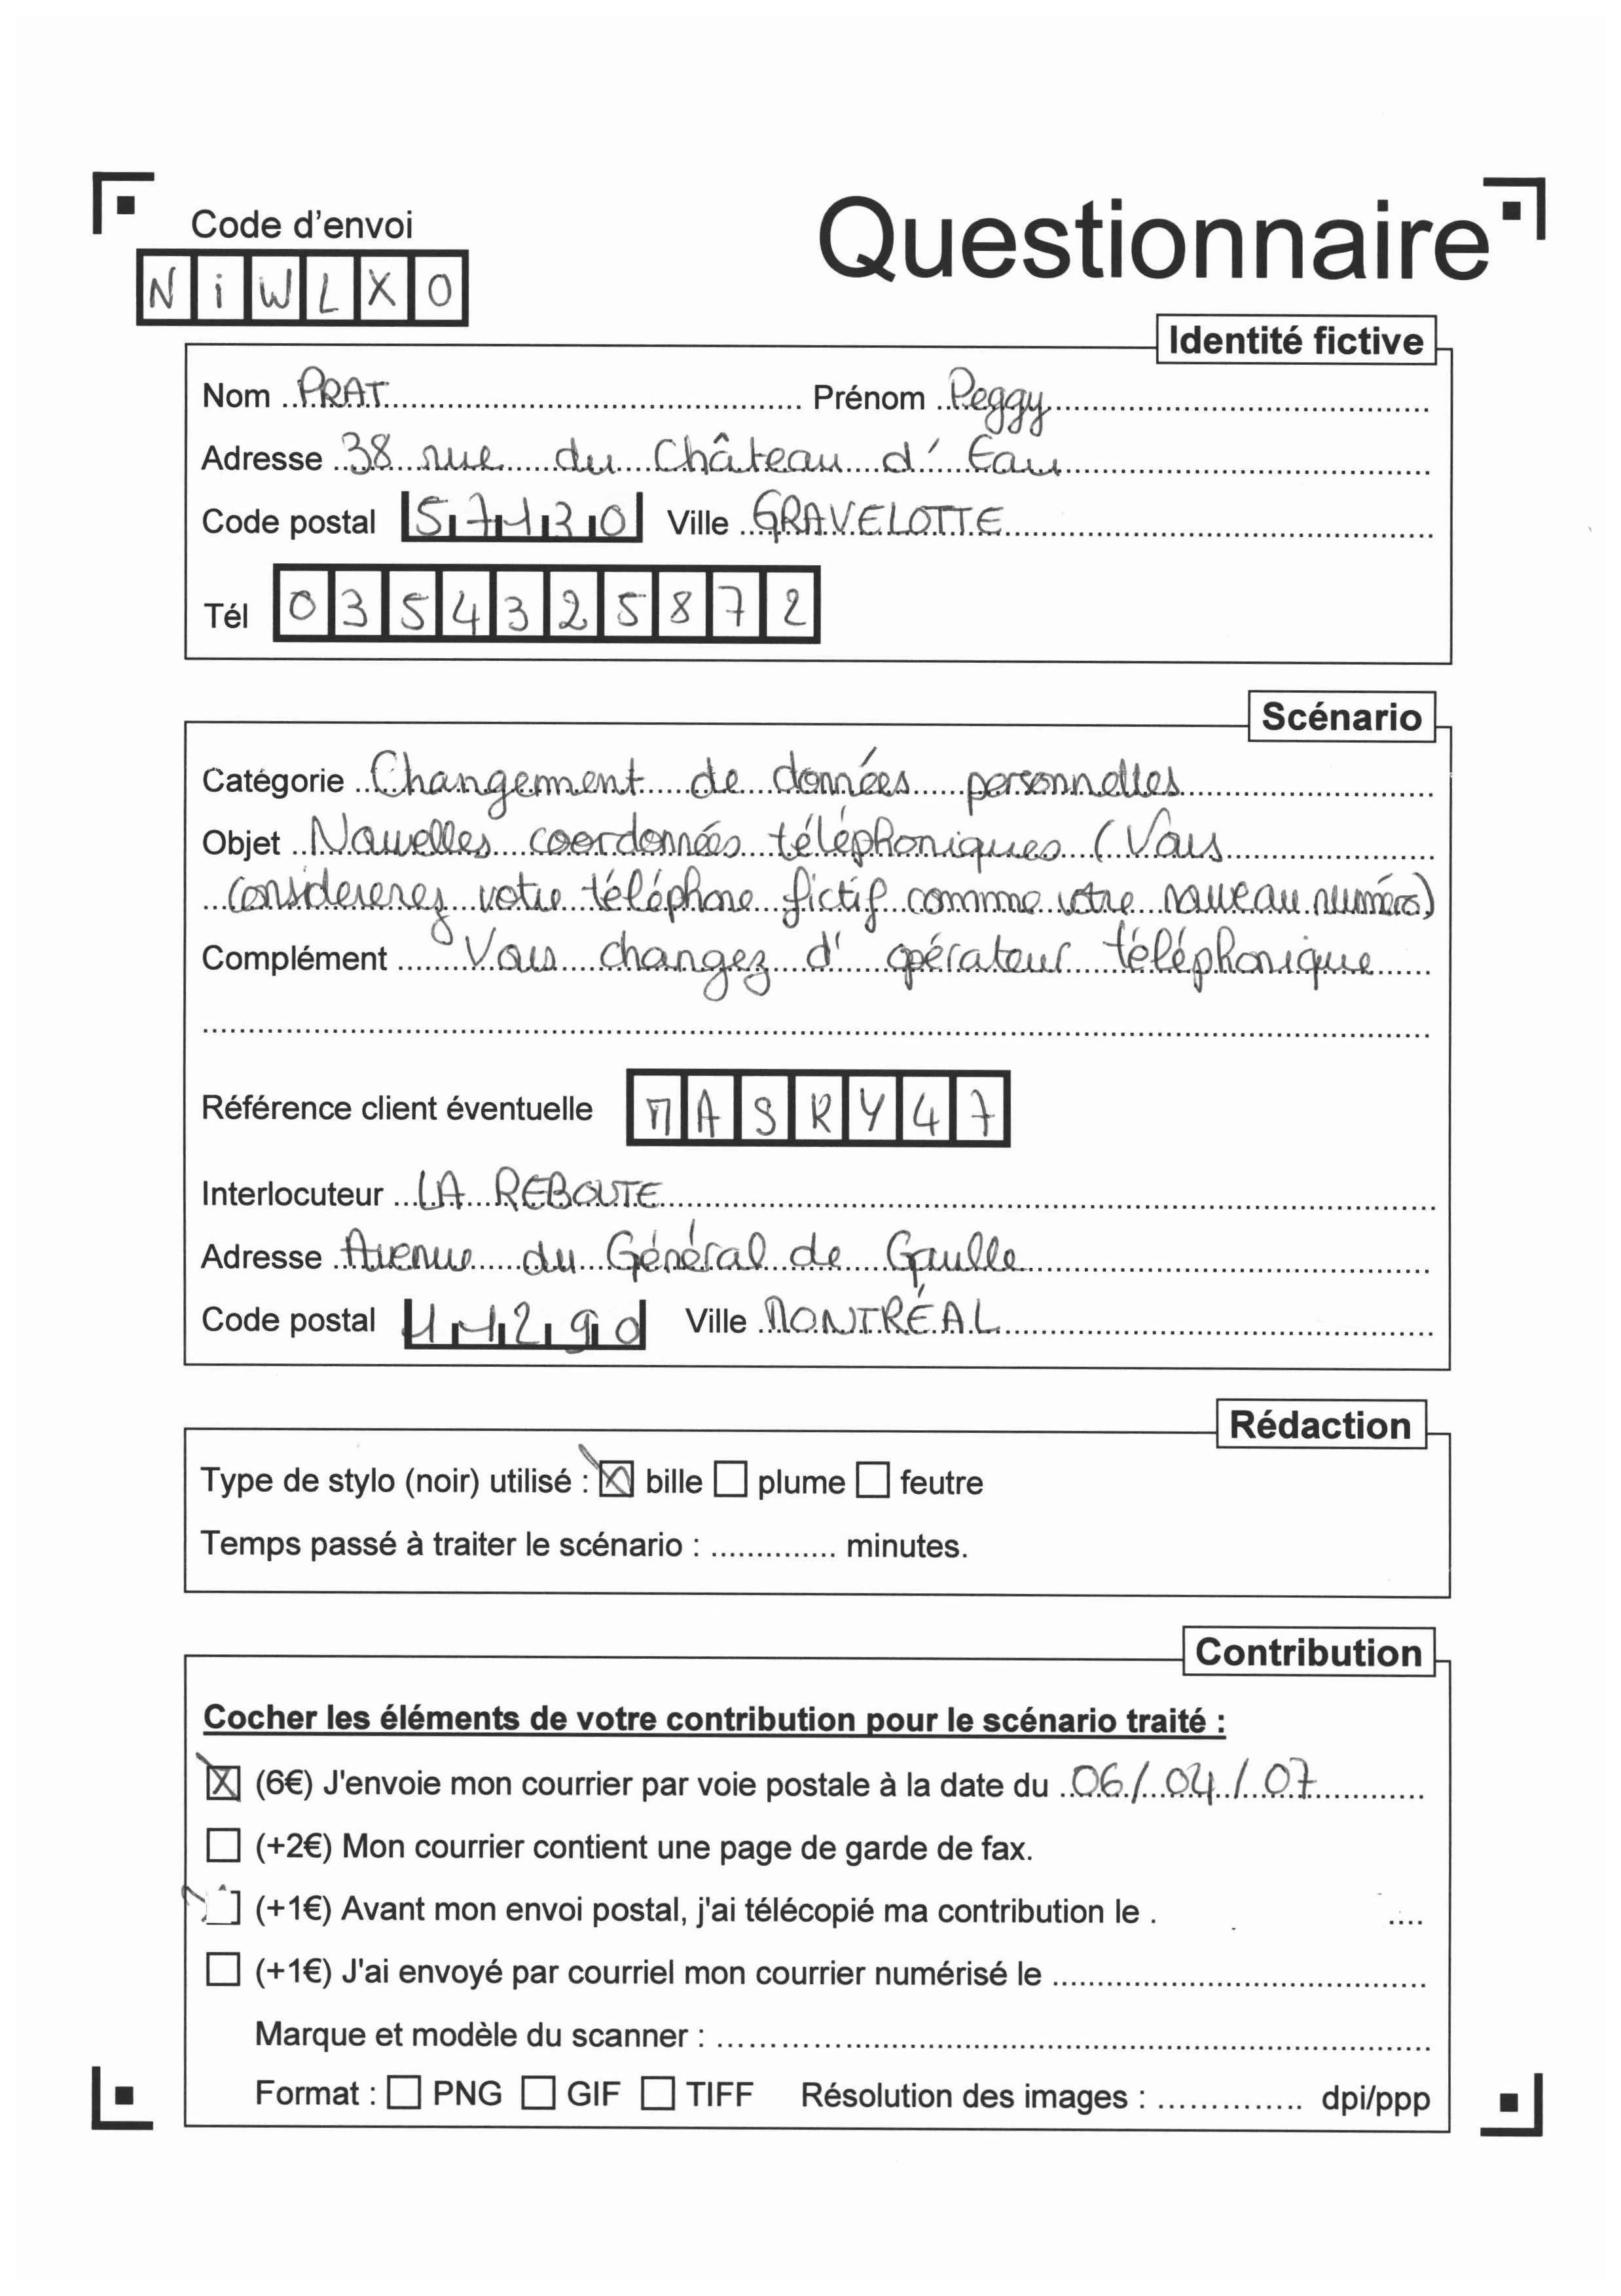 Code d'envoi
Questionnaire
NiWLXO
Identité fictive
Nom PRAT Prénom Peggy
Adresse 38 rue du Château d'Eau
Code postal 57130 Ville GRAVELOTTE
Tél 0354325872
Scénario
Catégorie Changement de données personnelles
Objet Nouvelles coordonnées téléphoniques (Vous
considererez votre téléphone fictif comme votre nouveau numéro)
Complément Vous changez d'opérateur téléphonique
Référence client éventuelle MASRY47
Interlocuteur LA REBOUTE
Adresse Avenue du Général de Gaulle
Code postal 11290 Ville MONTRÉAL
Rédaction
Type de stylo (noir) utilisé : bille plume feutre
Temps passé à traiter le scénario : .............. minutes.
Contribution
Cocher les éléments de votre contribution pour le scénario traité :
(6€) J'envoie mon courrier par voie postale à la date du 06/04/07
(+2€) Mon courrier contient une page de garde de fax.
(+1€) Avant mon envoi postal, j'ai télécopié ma contribution le . ....
(+1€) J'ai envoyé par courriel mon courrier numérisé le ..........
Marque et modèle du scanner : ..........
Format : PNG GIF TIFF Résolution des images : .............. dpi/ppp